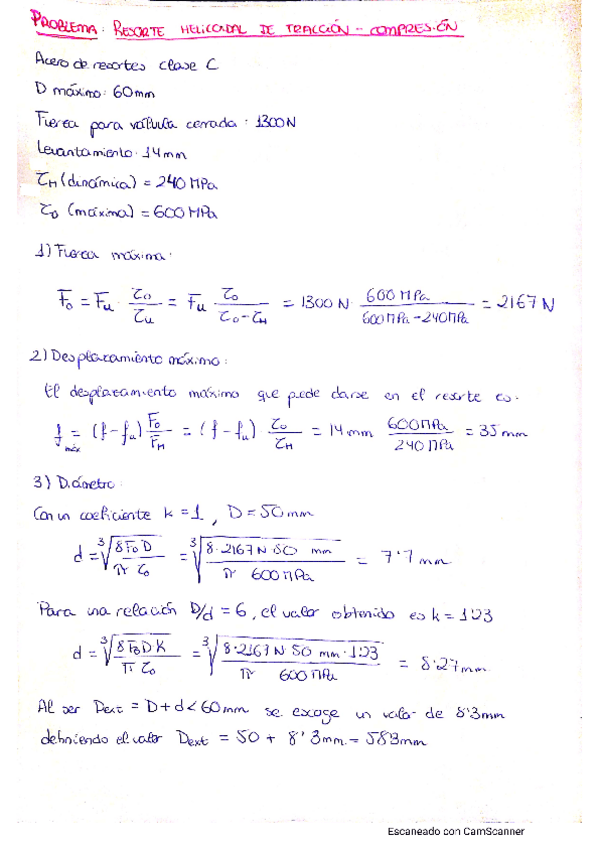 PROBLEMA: RESORTE HELICOIDAL DE TRACCIÓN - COMPRESIÓN
Acero de resortes clase C
D máximo: 60mm
Fuerza para válvula cerrada: 1300N
Levantamiento: 14mm
τH (dinámica) = 240 MPa
τ0 (máxima) = 600 MPa
1) Fuerza máxima:
F0 = Fu · τ0/τu = Fu τ0/(τ0-τH) = 1300 N · 600 MPa/(600 MPa - 240 MPa) = 2167 N
2) Desplazamiento máximo:
El desplazamiento máximo que puede darse en el resorte es:
f máx = (f-fu) F0/FH = (f-fu) τ0/τH = 14 mm 600 MPa/240 MPa = 35 mm
3) Diámetro:
Con un coeficiente k = 1, D = 50 mm
d = ∛(8 F0 D/π τ0) = ∛(8·2167 N·50 mm/π 600 MPa) = 7'7 mm
Para una relación D/d = 6, el valor obtenido es k = 1'23
d = ∛(8 F0 D K/π τ0) = ∛(8·2167 N·50 mm·1'23/π 600 MPa) = 8'27 mm
Al ser Dext = D + d < 60mm se escoge un valor de 8'3mm
definiendo el valor Dext = 50 + 8'3mm = 58'3mm
Escaneado con CamScanner